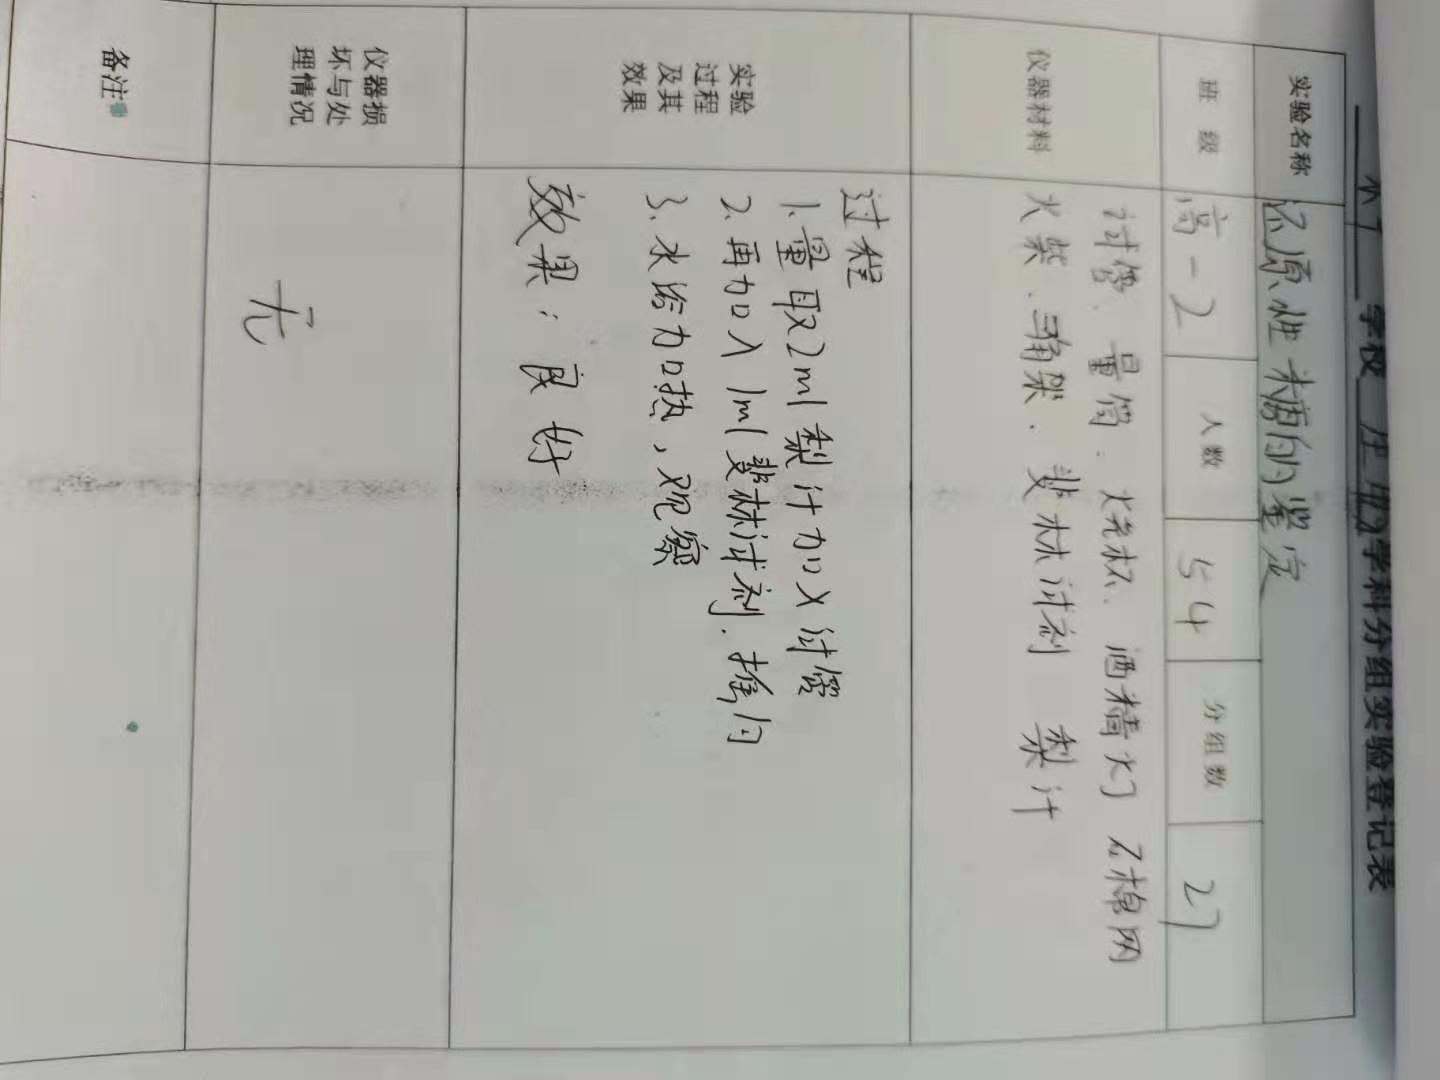 学校 生物 学科分组实验登记表
实验名称 还原性糖的鉴定
班 级 高-2 人数 54 分组数 27
仪器材料
试管、量筒、烧杯、酒精灯 石棉网
火柴、三角架、斐林试剂 梨汁
实验
过程
及其
效果
过程
1、量取2ml梨汁加入试管
2、再加入1ml斐林试剂、摇匀
3、水浴加热，观察
效果：良好
仪器损
坏与处
理情况
无
备注